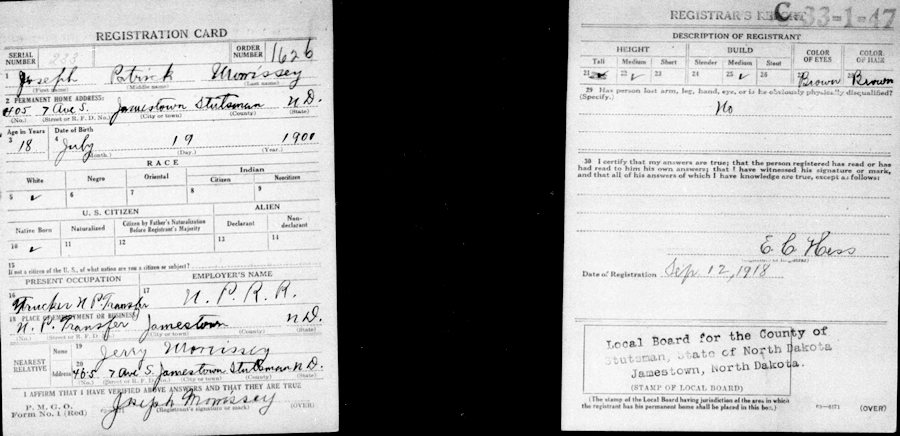 REGISTRATION CARD
SERIAL NUMBER 233
ORDER NUMBER 1626
1 Joseph Patrick Morrissey
(First name) (Middle name) (Last name)
2 PERMANENT HOME ADDRESS:
405 7 Ave S. Jamestown Stutsman N D.
(No.) (Street or R. F. D. No.) (City or town) (County) (State)
Age in Years Date of Birth
3 18 4 July 19 1900
(Month.) (Day.) (Year.)
RACE
White Negro Oriental Indian
Citizen Noncitizen
5 ✓ 6 7 8 9
U. S. CITIZEN ALIEN
Native Born Naturalized Citizen by Father's Naturalization Before Registrant's Majority Declarant Non-declarant
10 ✓ 11 12 13 14
15
If not a citizen of the U. S., of what nation are you a citizen or subject?
PRESENT OCCUPATION EMPLOYER'S NAME
16 Trucker N P Transfer 17 N. P. R. R.
18 PLACE OF EMPLOYMENT OR BUSINESS:
N. P. Transfer Jamestown N D.
(No.) (Street or R. F. D. No.) (City or town) (County) (State)
NEAREST RELATIVE
Name 19 Jerry Morrissey
Address 20 405 7 Ave S. Jamestown Stutsman N D.
(No.) (Street or R. F. D. No.) (City or town) (County) (State)
I AFFIRM THAT I HAVE VERIFIED ABOVE ANSWERS AND THAT THEY ARE TRUE
P. M. G. O.
Form No. 1 (Red)
Joseph Morrissey
(Registrant's signature or mark) (OVER)
REGISTRAR'S REPORT C-33-1-47
DESCRIPTION OF REGISTRANT
HEIGHT BUILD COLOR OF EYES COLOR OF HAIR
Tall Medium Short Slender Medium Stout
21 22 ✓ 23 24 25 ✓ 26 27 Brown 28 Brown
29 Has person lost arm, leg, hand, eye, or is he obviously physically disqualified?
(Specify.)
No
30 I certify that my answers are true; that the person registered has read or has
had read to him his own answers; that I have witnessed his signature or mark,
and that all of his answers of which I have knowledge are true, except as follows:
E C Hess
Date of Registration Sep. 12, 1918
Local Board for the County of
Stutsman, State of North Dakota
Jamestown, North Dakota.
(STAMP OF LOCAL BOARD)
(The stamp of the Local Board having jurisdiction of the area in which
the registrant has his permanent home shall be placed in this box.)
(OVER)